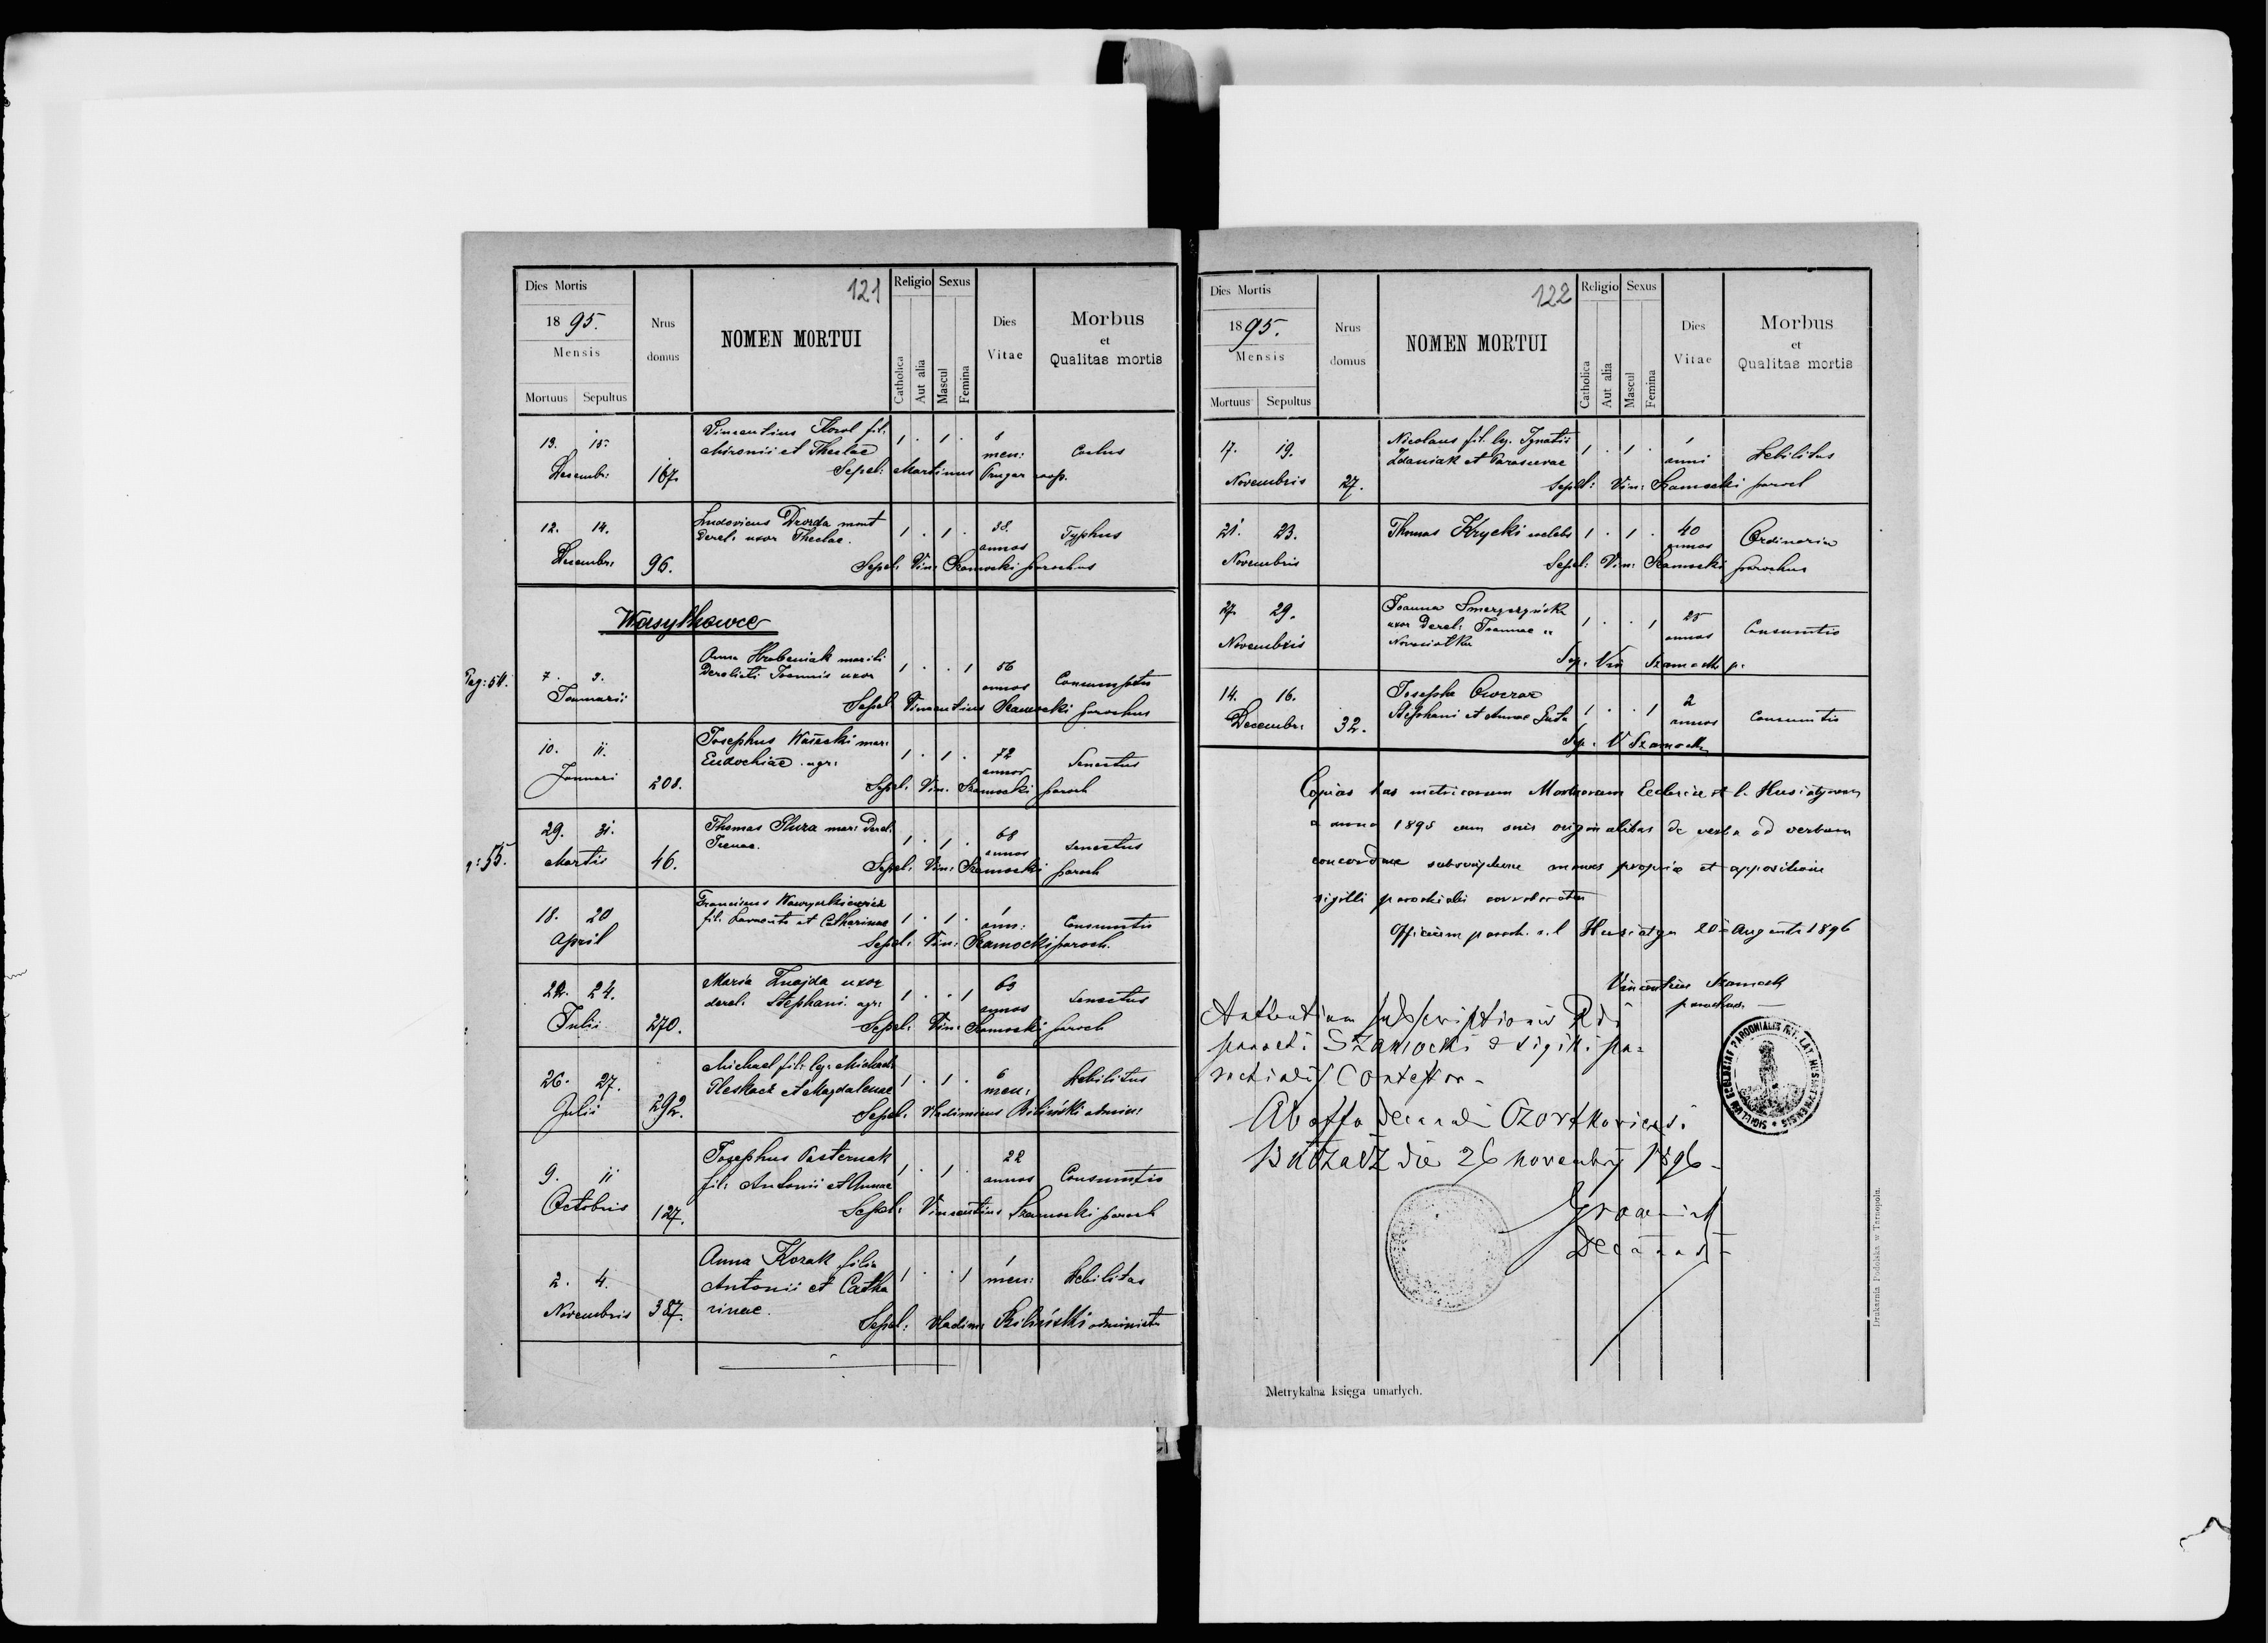 121
Dies Mortis
1895.
Mensis
Mortuus Sepultus
Nrus domus
NOMEN MORTUI
Religio Sexus
Catholica Aut alia Mascul Femina
Dies Vitae
Morbus et Qualitas mortis
Vincentius Korol fil:
13. 15. Mironii et Theclae 1 . 1 . 8 men: Coelus
Decembr: 167. Sepel: Martinus Prugar coop.
12. 14. Ludovicus Drozda mont
derel: uxor Theclae. 1 . 1 . 38. annos Typhus
Decembr: 96. Sepel: Vin: Szamocki parochus
Wasylkowce
Pag: 54. 7. 9. Anna Hrabeniak mariti
Derelicti Joannis uxor 1 . . 1 56 annos Consumptio
Januarii Sepel: Vincentius Szamocki parochus
10. 11. Josephus Wasecki mar:
Eudochiae agr: 1 . 1 . 72 annos Senectus
Januari 208. Sepel: Vin. Szamocki paroch
29. 31. Thomas Pluza mar: derel.
g: 55. Martis 46. Irenae. 1 . 1 . 68 annos Senectus
Sepel: Vin: Szamocki paroch
18. 20 Franciscus Wawryszkiewicz
April fil. et Catharinae 1 . 1 . 1 ann: Consumtio
Sepel: Vin: Szamocki paroch.
22. 24. Maria Znajda uxor
derel: Stephani agr: 1 . . 1 63 annos Senectus
Julii 270. Sepel: Vin: Szamocki paroch
26. 27. Michael fil: lg. Michaeli
Julii 292. Pleskacz et Magdalenae 1 . 1 . 6 men: Debilitas
Sepel: Vladimirus Biliński admin:
9. 11 Josephus Pasternak
fil: Antonii et Annae 1 . 1 . 22 annos Consumtio
Octobris 127. Sepel: Vincentius Szamocki paroch
2. 4. Anna Kozak filia
Antonii et Catha 1 . . 1 1 men: Debilitas
Novembris 387. rinae. Sepel: Vladim: Biliński administr
122
Dies Mortis
1895.
Mensis
Mortuus Sepultus
Nrus domus
NOMEN MORTUI
Religio Sexus
Catholica Aut alia Mascul Femina
Dies Vitae
Morbus et Qualitas mortis
17. 19. Nicolaus fil. lg. Ignatii
Zdaniak et Parascevae 1 . 1 . 1 anni Debilitas
Novembris 27. Sepel: Vin: Szamocki paroch
21. 23. Thomas Krycki coelebs 1 . 1 . 40 annos Ordinaria
Novembris Sepel: Vin: Szamocki parochus
27. 29. Joanna
uxor derel: Joannae 1 . . 1 25 annos Consumtio
Novembris Sep. Vin Szamocki p.
14. 16. Josepha Owczar
Stephani et Annae 1 . . 1 2 annos Consumtio
Decembr: 32. Sep. V Szamocki
Copias has metricarum Mortuorum Ecclesiae r. l. Husiatynen
a anno 1895 cum suis originalibus de verbo ad verbum
concordare subscriptione manus propria et appositione
sigilli parochialis corroboratur
Officium paroch. r. l Husiatyn 20 Augusti 1896
Vincentius Szamocki
parochus
Authenticam subscriptionis Rdi
parochi Szamocki & sigilli pa-
rochialis Contestor -
Ab offo Decanali Czortkoviensi
Buczacz die 26 novembris 1896 -
Gromnicki
Decanus
SIGILLUM ECCLESIAE PAROCHIALIS RIT. LAT. HUSIATYNENSIS
Drukarnia Podolska w Tarnopolu.
Metrykalna księga umarłych.